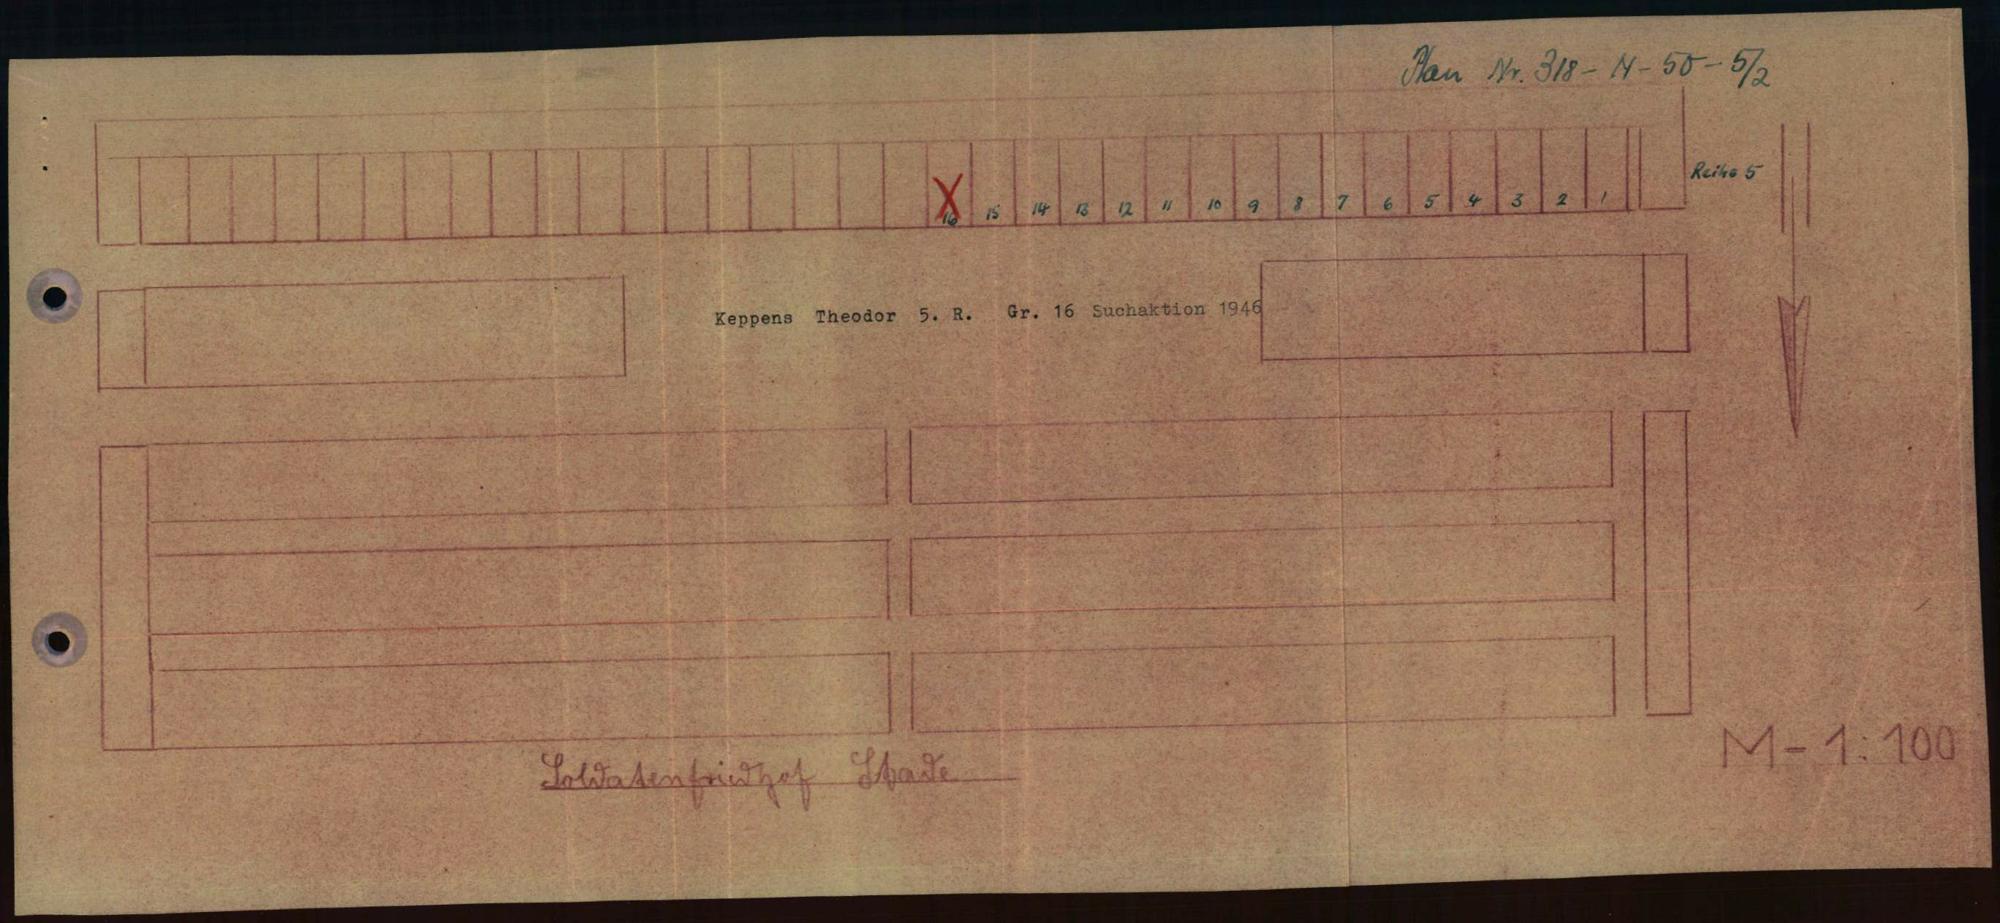 Plan Nr. 318-N-50-5/2
16 15 14 13 12 11 10 9 8 7 6 5 4 3 2 1 Reihe 5
Keppens Theodor 5. R. Gr. 16 Suchaktion 1946
M-1:100
Soldatenfriedhof Stade